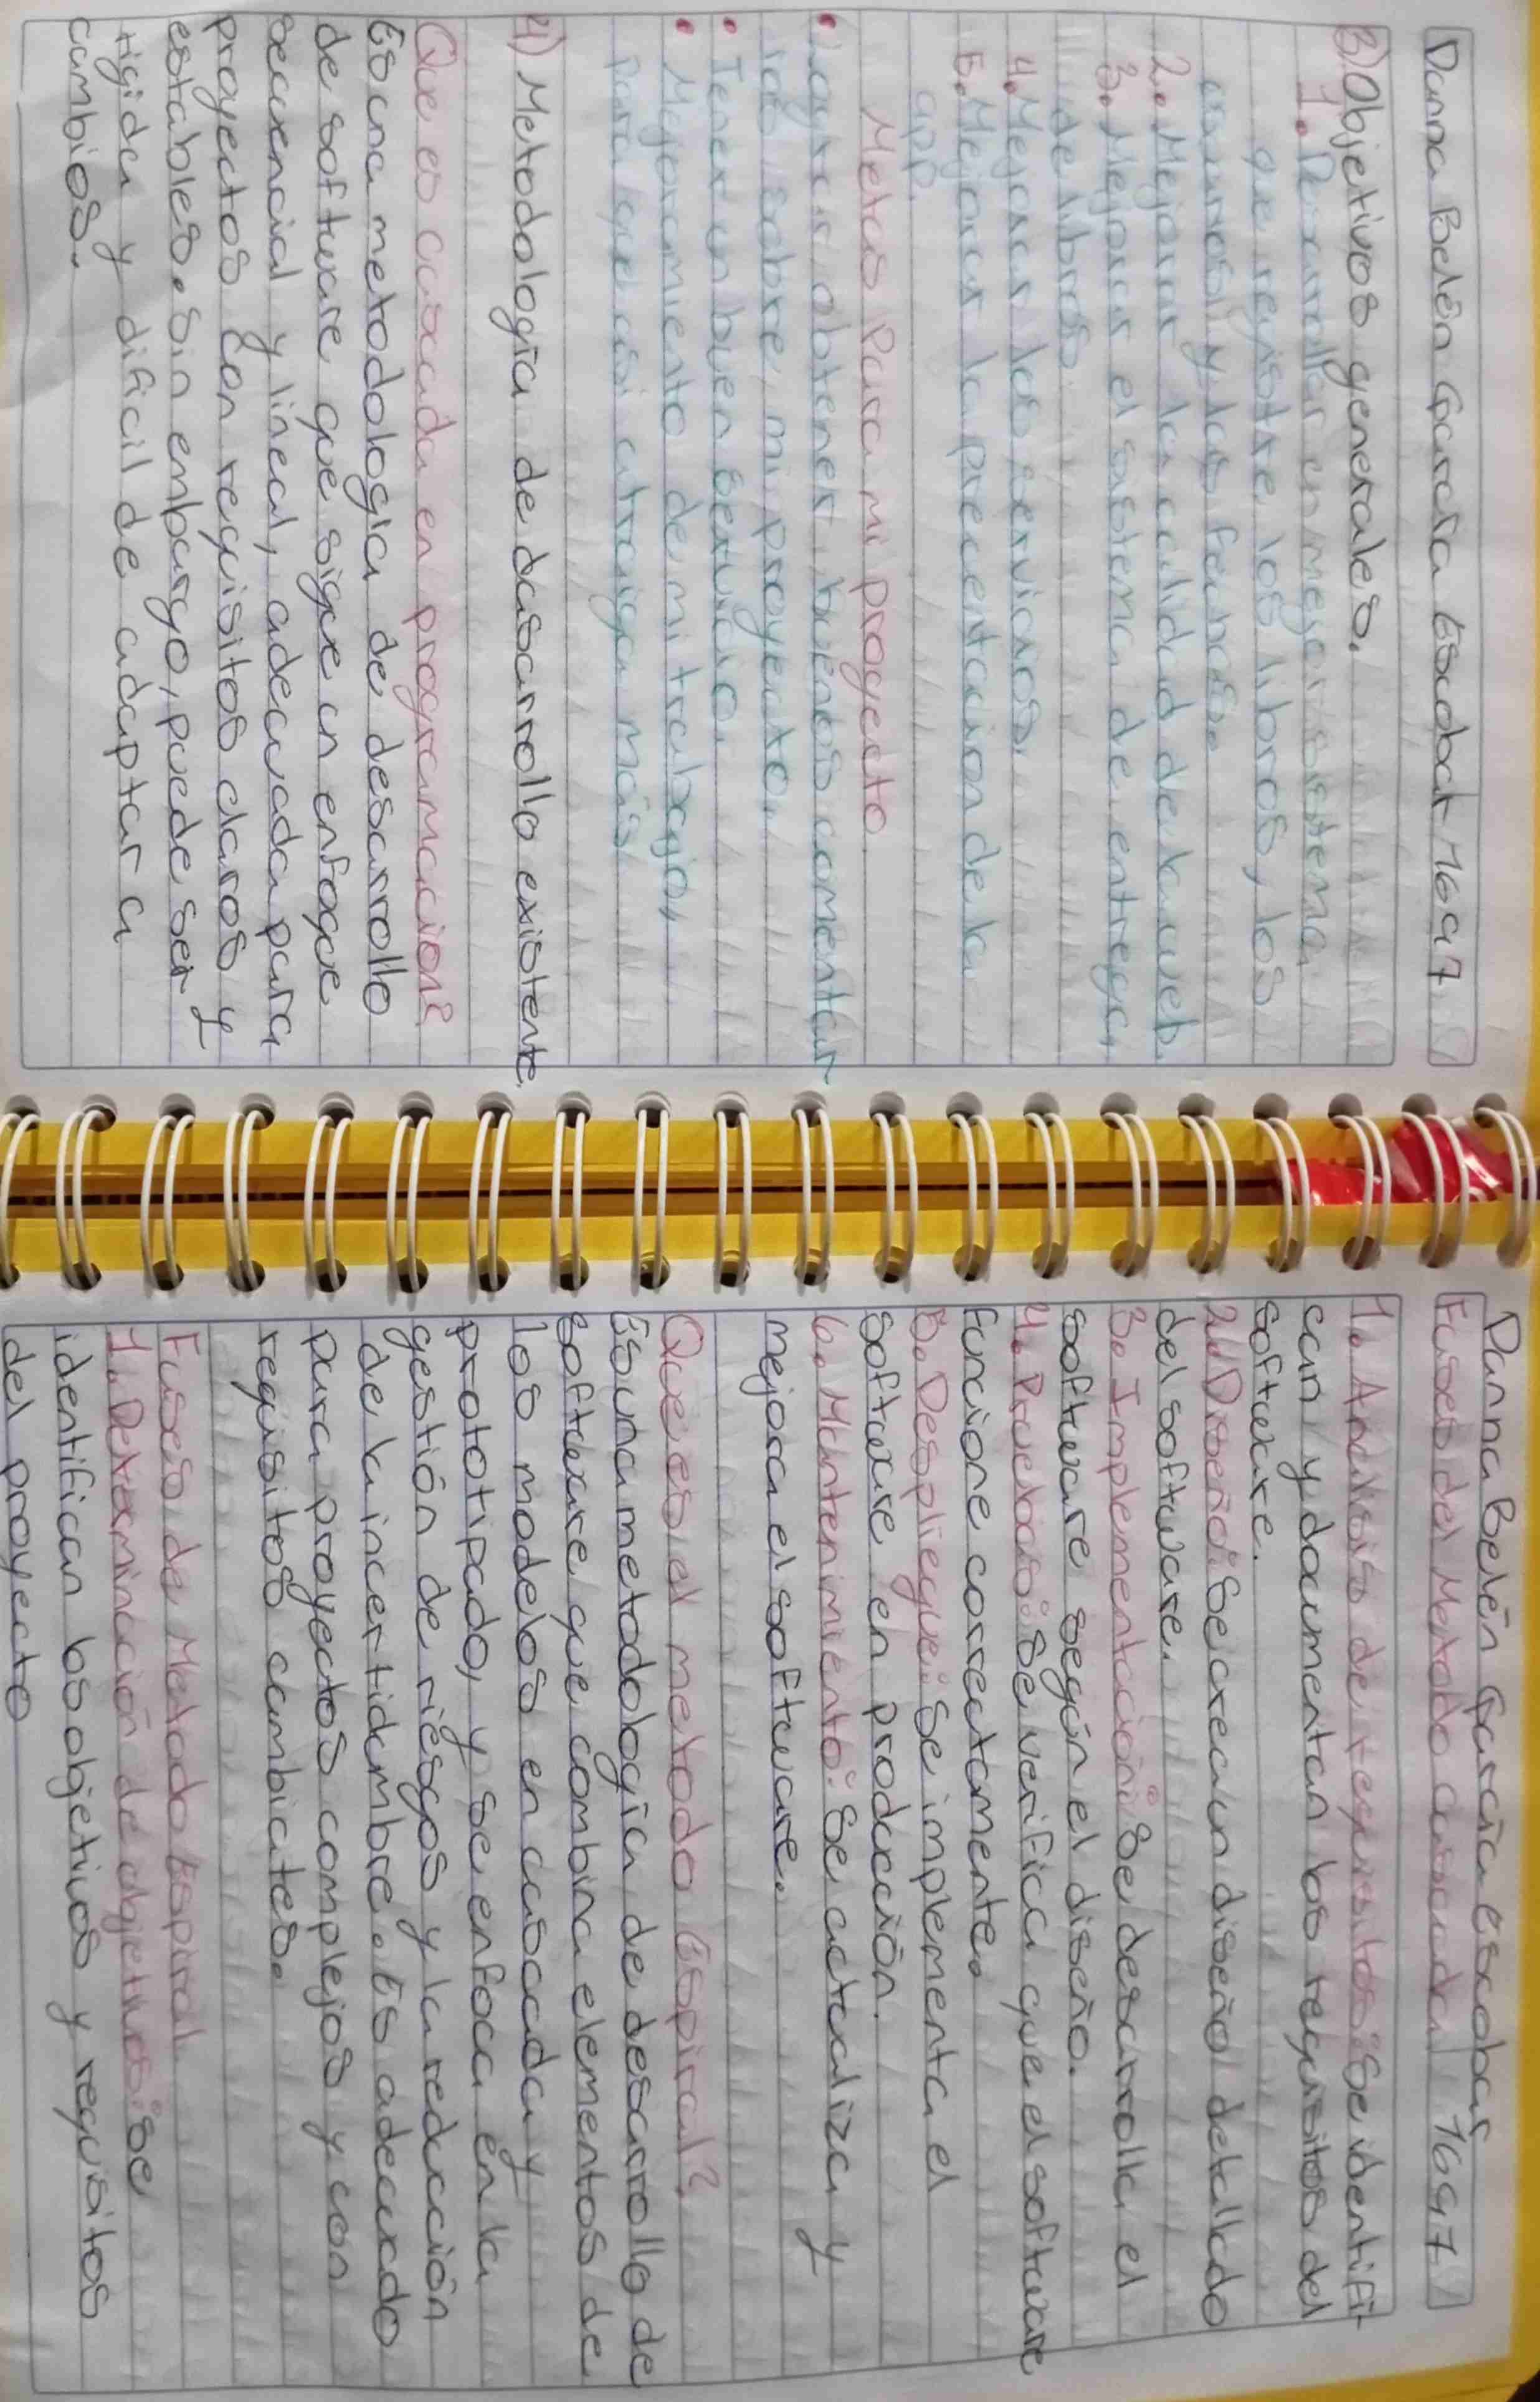 Danna Belén García Escobar 1697
3) Objetivos generales.
1. Desarrollar un mejor sistema
que registre los libros, los
usuarios y las fechas.
2. Mejorar la calidad de la web.
3. Mejorar el sistema de entrega
de libros.
4. Mejorar los servicios.
5. Mejorar la precentacion de la
app.
Metas Para mi progecto
• Lograr obtener buenos comentar
ios sobre mi proyecto.
• Tener un buen servicio.
• Mejoramiento de mi trabajo,
para que asi atraiga más
4) Metodología de dasarrollo existente.
Que es cascada en programacion?
Es una metodologia de desarrollo
de software que sigue un enfoque
secuencial y lineal, adecuada para
proyectos con requisitos claros y
estables. sin embargo, puede ser
rigida y dificil de adaptar a
cambios.
Danna Belén García Escobar
Fases del Metodo cascada 1697
1. Analisis de requisitos: Se identifi-
can y documentan los requisitos del
software.
2. Diseño: Se crea un diseño detallado
del software.
3. Implementación: Se desarrolla el
software según el diseño.
4. Pruebas: Se verifica que el software
funcione correctamente.
5. Despliegue: Se implementa el
software en producción.
6. Mantenimiento: Se actualiza y
mejora el software.
Que es el metodo Espiral?
Es una metodología de desarrollo de
software que combina elementos de
los modelos en cascada y
prototipado, y se enfoca en la
gestión de riesgos y la reducción
de la incertidumbre. Es adecuado
para proyectos complejos y con
requisitos cambiates.
Fases de Metodo Espiral
1. Determinación de objetivos: Se
identifican los objetivos y requisitos
del proyecto